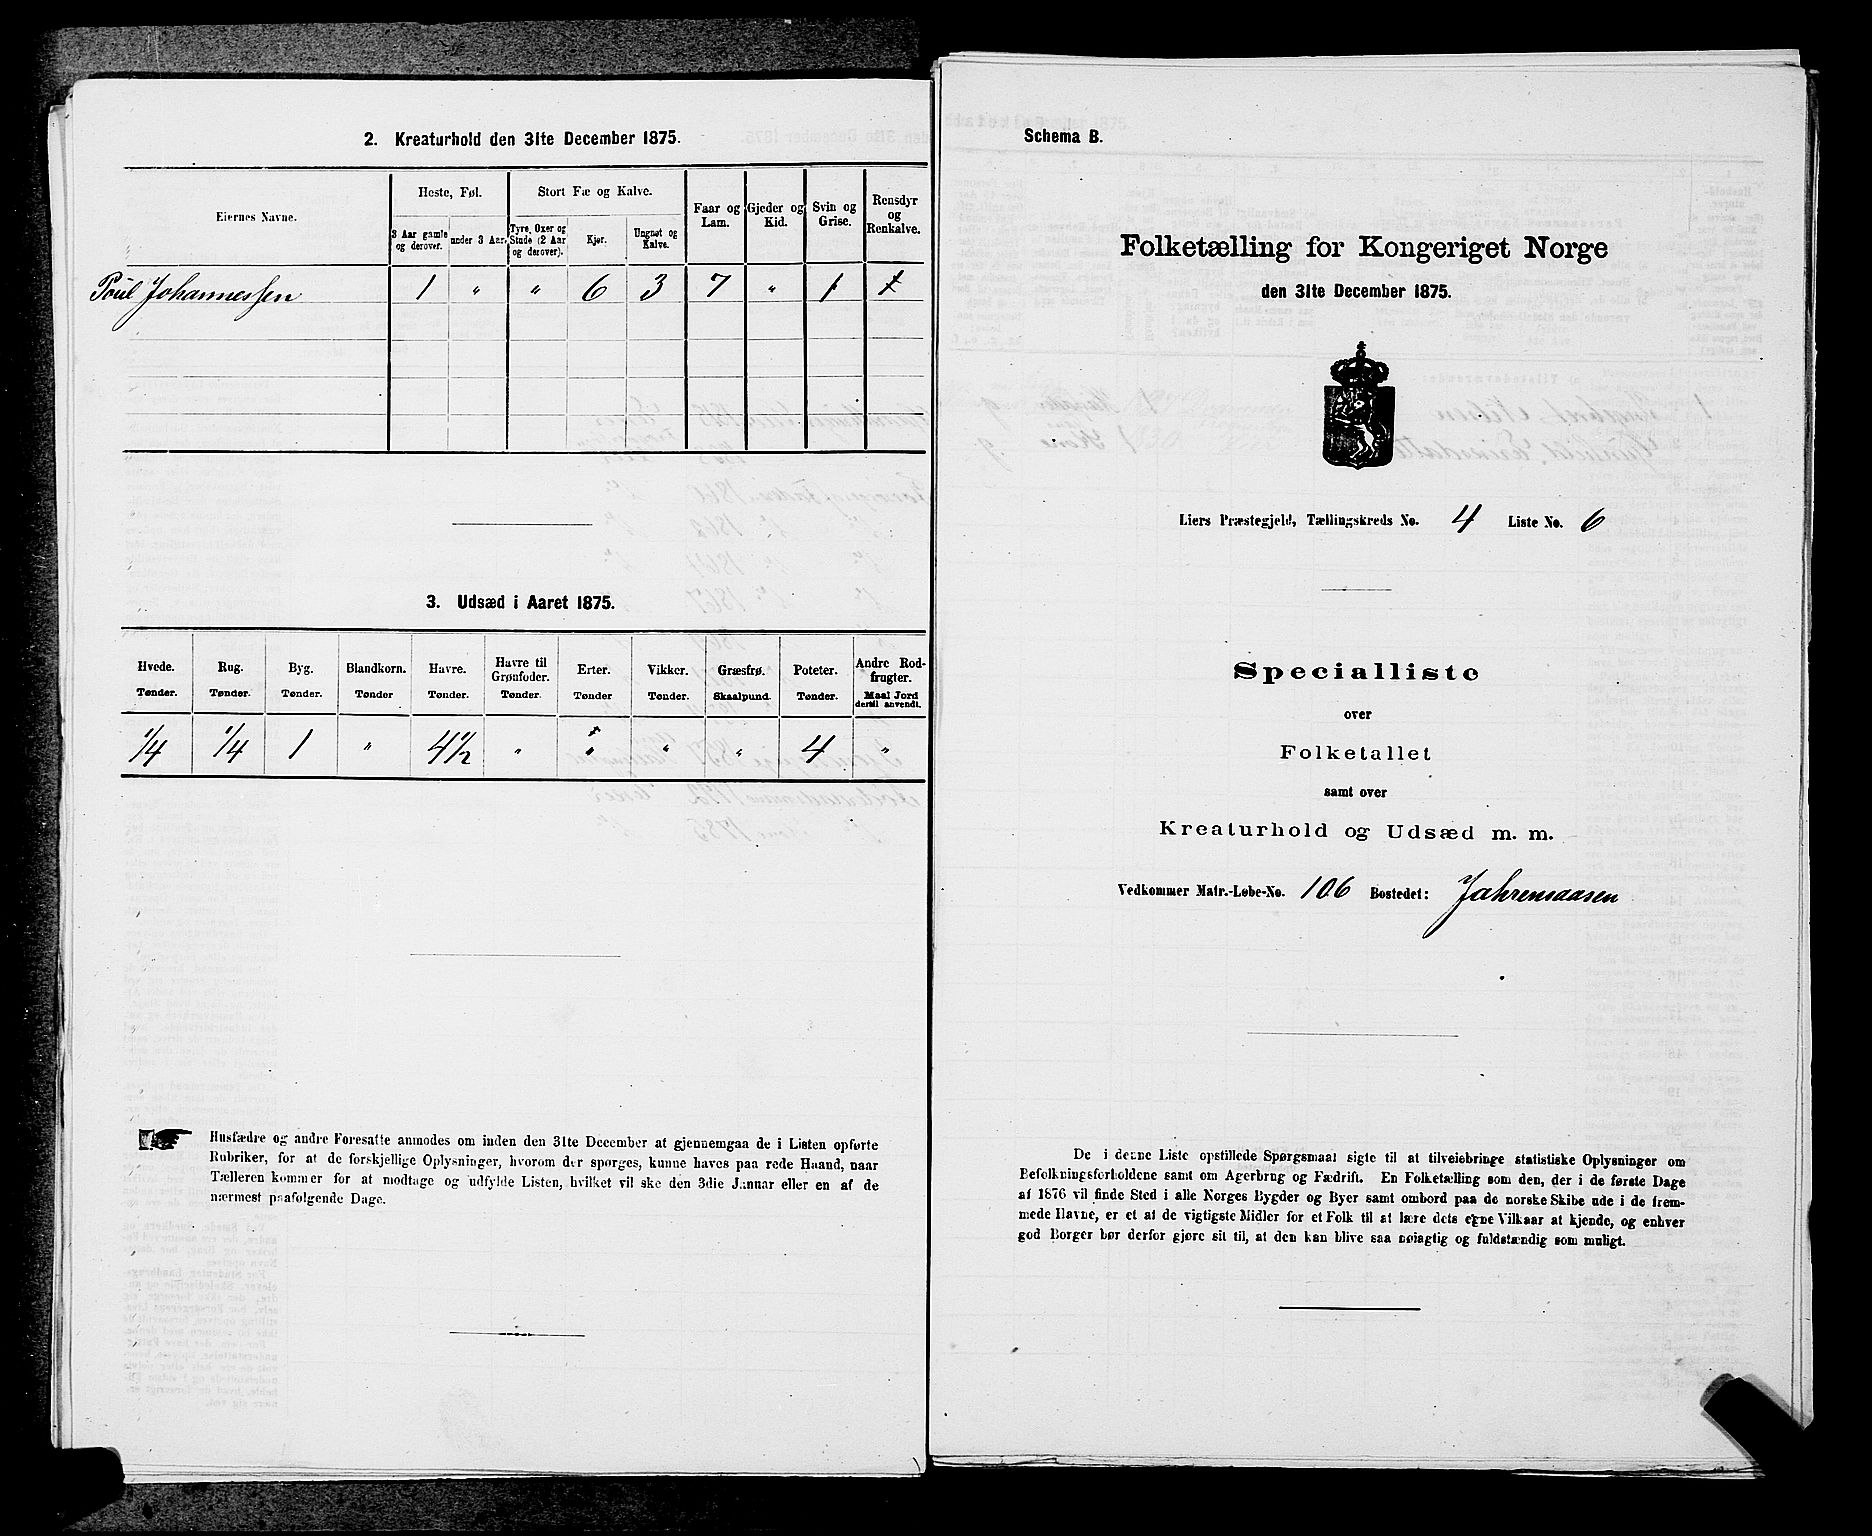 2. Kreaturhold den 31te December 1875.
Eiernes Navne.
Heste, Føl.
3 Aar gamle og derover.
under 3 Aar.
Stort Fæ og Kalve.
Tyre, Oxer og Stude (2 Aar og derover).
Kjør.
Ungnøt og Kalve.
Faar og Lam.
Gjeder og Kid.
Svin og Grise.
Rensdyr og Renkalve.
Poul Johannessen 1 " " 6 3 7 " 1
3. Udsæd i Aaret 1875.
Hvede. Rug. Byg. Blandkorn. Havre. Havre til Grønfoder. Erter. Vikker. Græsfrø. Poteter. Andre Rodfrugter.
Tønder. Tønder. Tønder. Tønder Tønder. Tønder. Tønder Tønder. Skaalpund. Tønder. Maal Jord dertil anvendt.
1/4 1/4 1 " 4 1/2 " " " " 4 "
Husfædre og andre Foresatte anmodes om inden den 31te December at gjennemgaa de i Listen opførte
Rubriker, for at de forskjellige Oplysninger, hvorom der spørges, kunne haves paa rede Haand, naar
Tælleren kommer for at modtage og udfylde Listen, hvilket vil ske den 3die Januar eller en af de
nærmest paafølgende Dage.
Schema B.
Folketælling for Kongeriget Norge
den 31te December 1875.
Liers Præstegjeld, Tællingskreds No. 4 Liste No. 6
Specialliste
over
Folketallet
samt over
Kreaturhold og Udsæd m. m.
Vedkommer Matr.-Løbe-No. 106 Bostedet: Jahrensaasen
De i denne Liste opstillede Spørgsmaal sigte til at tilveiebringe statistiske Oplysninger om
Befolkningsforholdene samt om Agerbrug og Fædrift. En Folketælling som den, der i de første Dage
af 1876 vil finde Sted i alle Norges Bygder og Byer samt ombord paa de norske Skibe ude i de frem-
mede Havne, er et af de vigtigste Midler for et Folk til at lære dets egne Vilkaar at kjende, og enhver
god Borger bør derfor gjøre sit til, at den kan blive saa nøiagtig og fuldstændig som muligt.